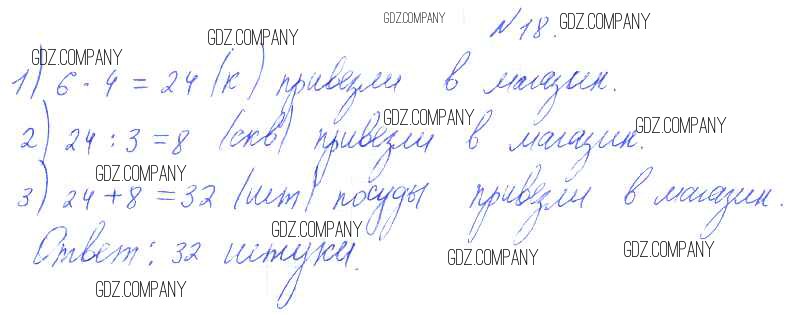 GDZ.COMPANY
№18. GDZ.COMPANY
GDZ.COMPANY
GDZ.COMPANY
1) 6 · 4 = 24 (к) привезли в магазин.
GDZ.COMPANY
GDZ.COMPANY
2) 24 : 3 = 8 (скв) привезли в магазин.
GDZ.COMPANY
3) 24 + 8 = 32 (шт) посуды привезли в магазин.
GDZ.COMPANY
Ответ: 32 штуки.
GDZ.COMPANY
GDZ.COMPANY
GDZ.COMPANY